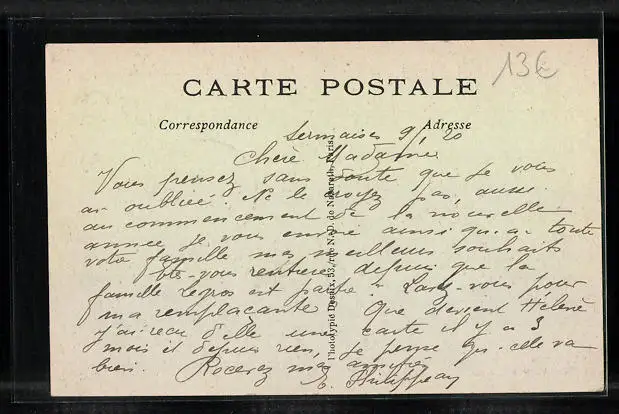 13€
CARTE POSTALE
Correspondance Adresse
Sermaises 9/ 20
Chère Madame
Vous pensez sans doute que je vous
ai oubliée. Ne le croyez pas, aussi
au commencement de la nouvelle
année je vous envoie ainsi qu'à toute
votre famille mes meilleurs souhaits
êtes-vous rentrée depuis que la
famille est partie ? -vous pour
ma remplaçante Que devient Hélène
j'ai reçu d'elle une carte il y a 3
mois et depuis rien, je pense qu'elle va
bien. Recevez mes amitiés
E. Philippeau
Phototypie Desaix, 53, rue N.-D. de Nazareth, Paris